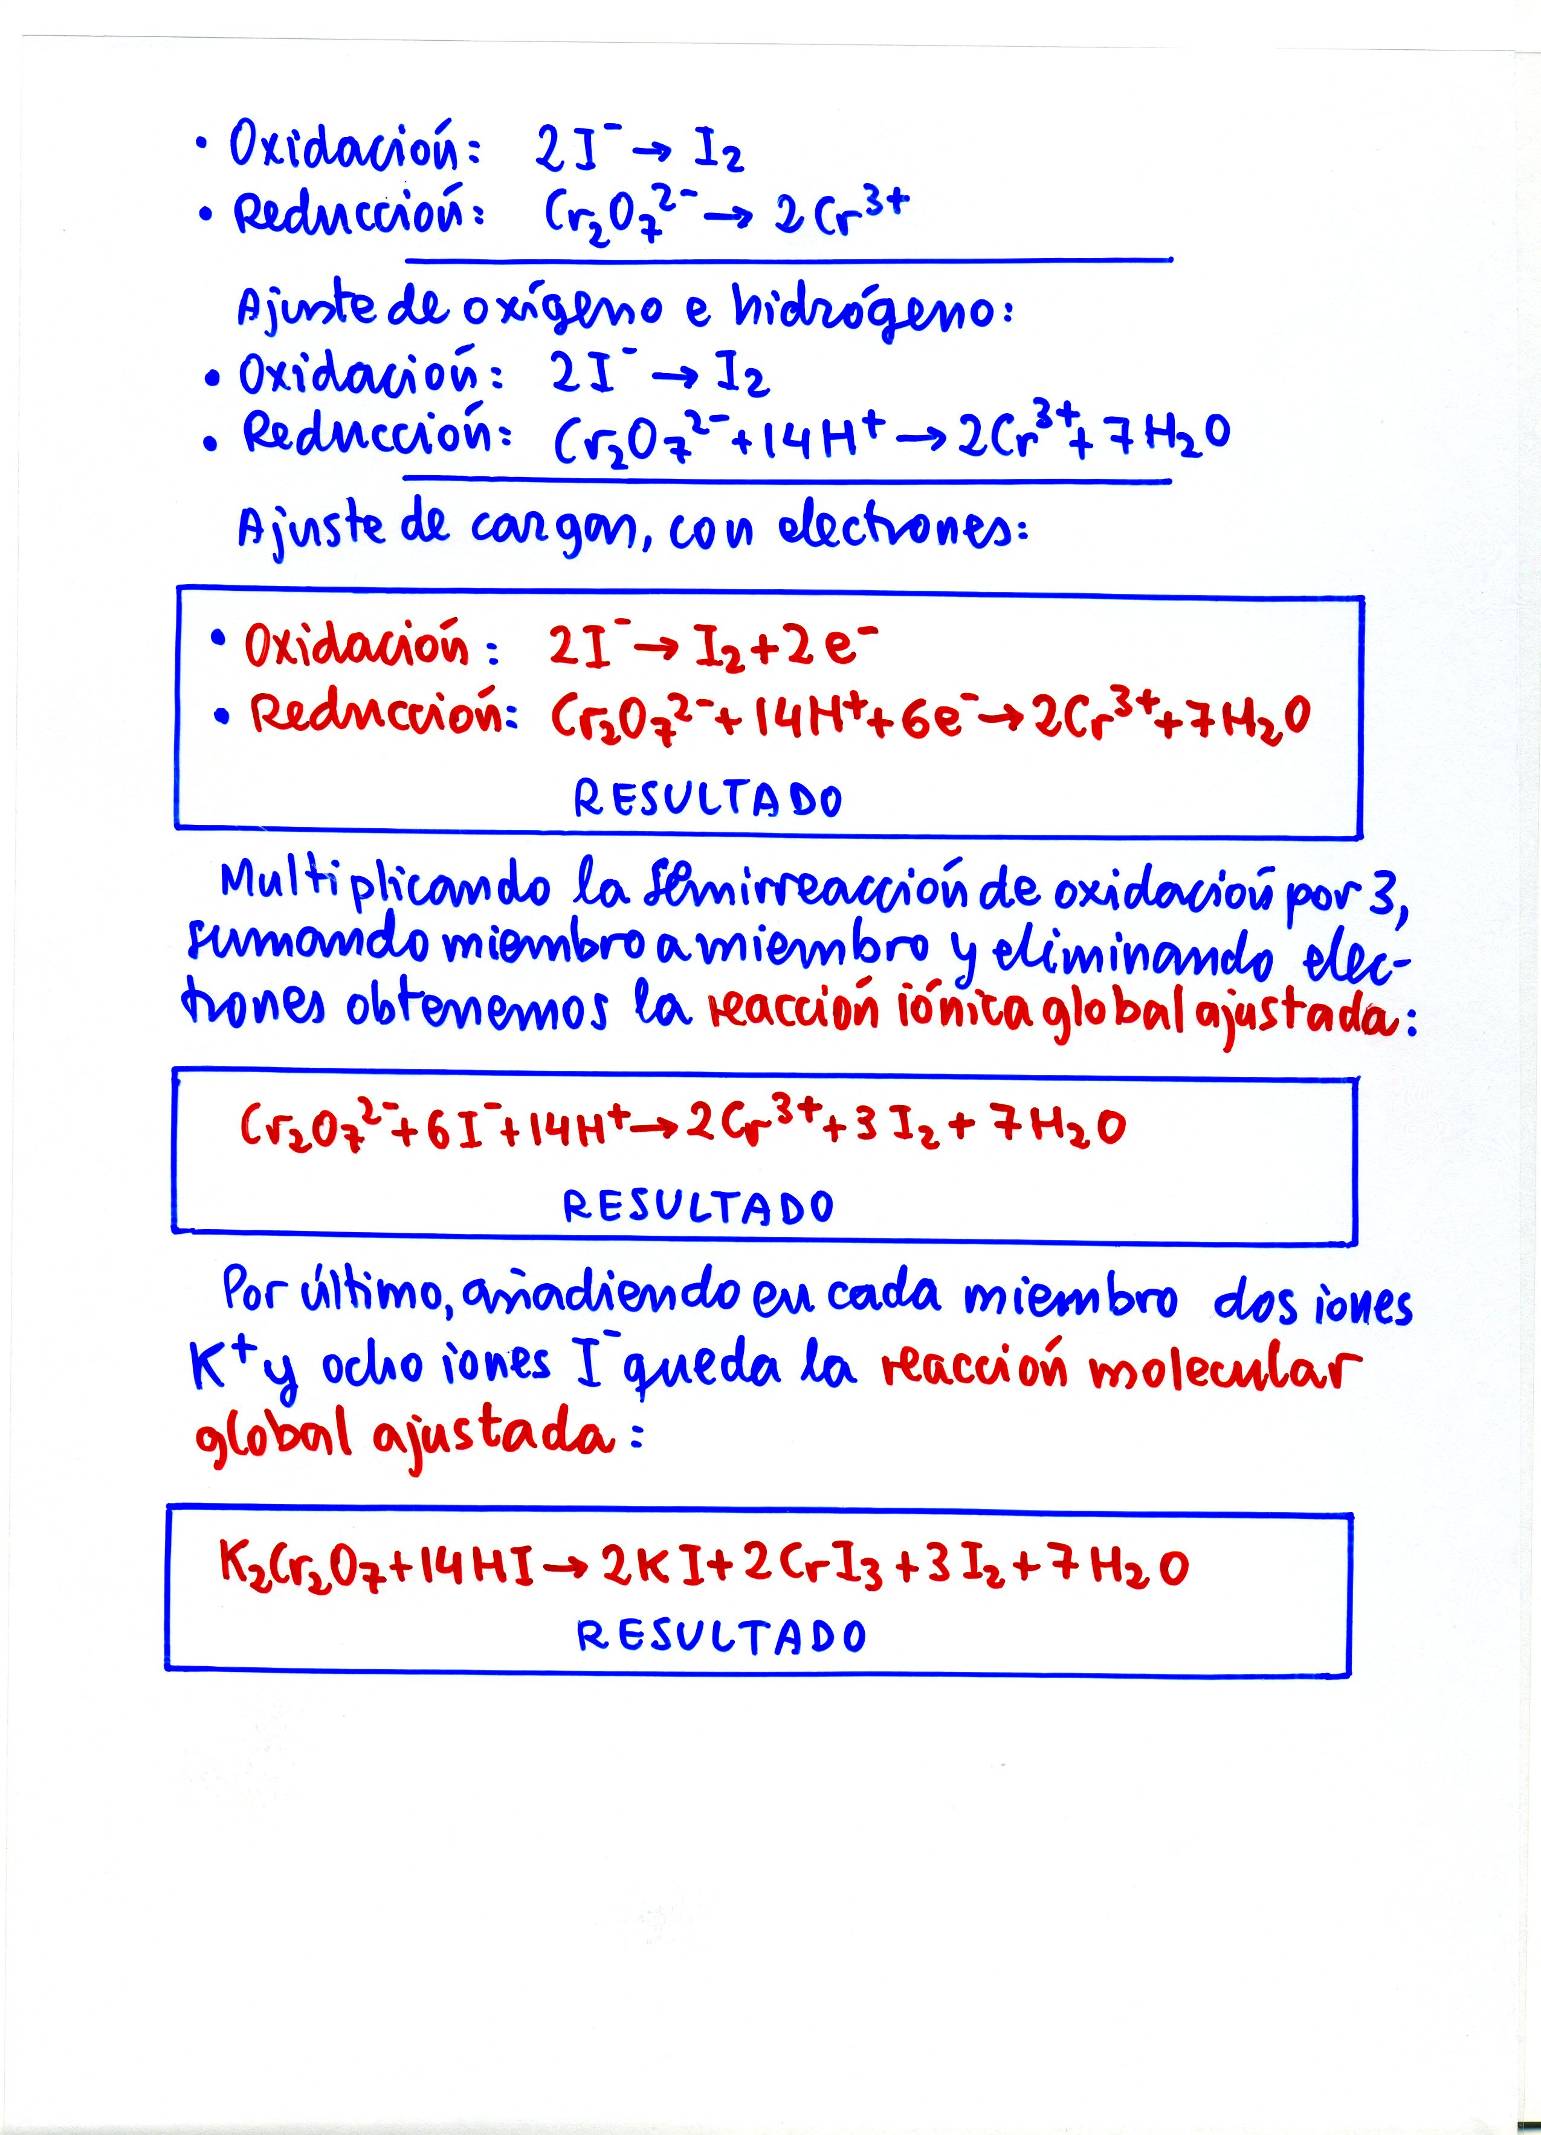 • Oxidación: 2I⁻ → I₂
• Reducción: Cr₂O₇²⁻ → 2Cr³⁺
Ajuste de oxígeno e hidrógeno:
• Oxidación: 2I⁻ → I₂
• Reducción: Cr₂O₇²⁻+14H⁺ → 2Cr³⁺+7H₂O
Ajuste de cargas, con electrones:
• Oxidación: 2I⁻ → I₂+2e⁻
• Reducción: Cr₂O₇²⁻+14H⁺+6e⁻ → 2Cr³⁺+7H₂O
RESULTADO
Multiplicando la semirreacción de oxidación por 3,
sumando miembro a miembro y eliminando elec-
trones obtenemos la reacción iónica global ajustada:
Cr₂O₇²⁻+6I⁻+14H⁺ → 2Cr³⁺+3I₂+7H₂O
RESULTADO
Por último, añadiendo en cada miembro dos iones
K⁺ y ocho iones I⁻ queda la reacción molecular
global ajustada:
K₂Cr₂O₇+14HI → 2KI+2CrI₃+3I₂+7H₂O
RESULTADO